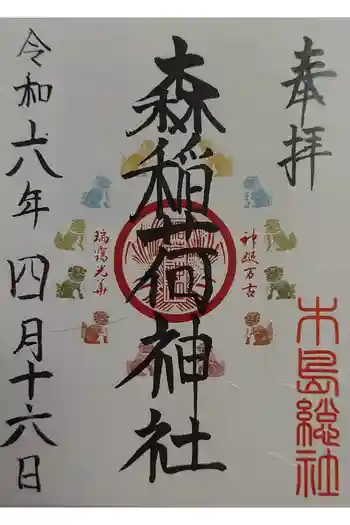 奉拝
木島総社
神延万古
森稲荷神社
瑞靄光華
令和六年四月十六日